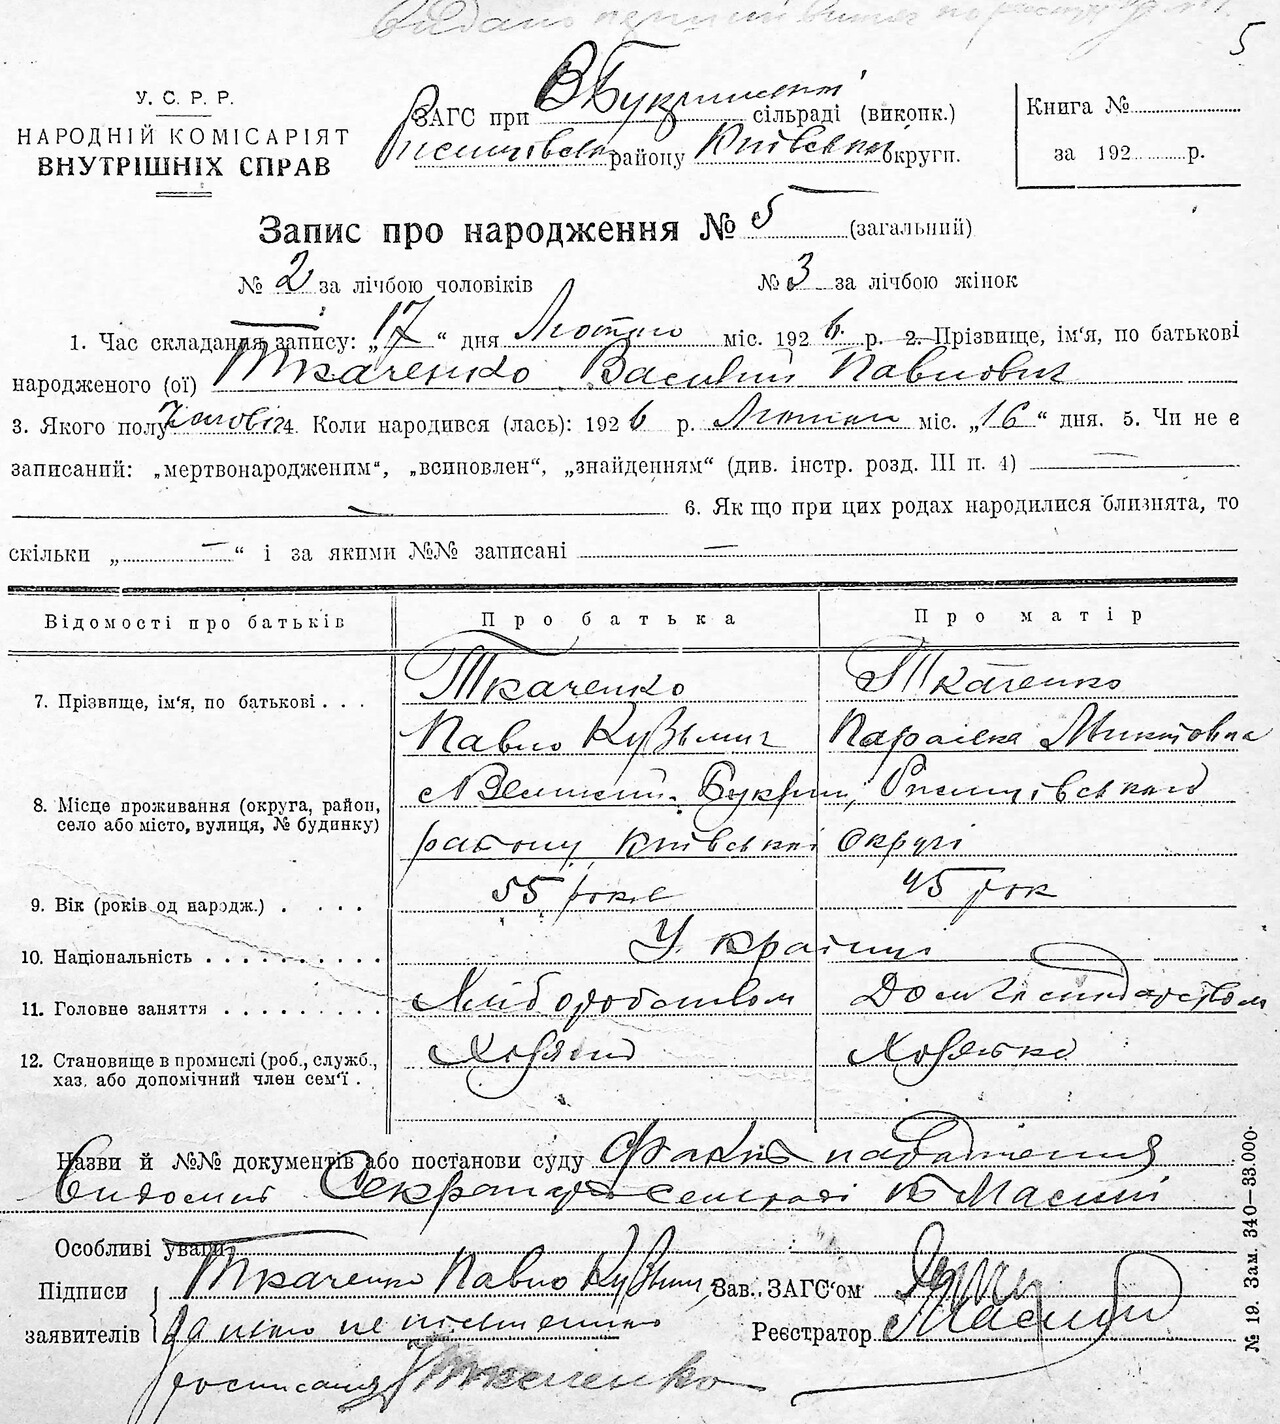 5
У. С. Р. Р.
НАРОДНІЙ КОМІСАРІЯТ
ВНУТРІШНІХ СПРАВ
ЗАГС при В Букринській сільраді (виконк.)
району Київської округи.
Книга №
за 192 р.
Запис про народження № 5 (загальний)
№ 2 за лічбою чоловіків № 3 за лічбою жінок
1. Час складання запису: „17“ дня Лютого міс. 1926 р. 2. Прізвище, ім'я, по батькові
народженого (ої) Ткаченко Василий Павлович
3. Якого полу 4. Коли народився (лась): 1926 р. міс. „16“ дня. 5. Чи не є
записаний: „мертвонародженим“, „всиповлен“, „знайденням“ (див. інстр. розд. III п. 4) —
— 6. Як що при цих родах народилися близнята, то
скільки „ — “ і за якими №№ записані —
Відомості про батьків Про батька Про матір
7. Прізвище, ім'я, по батькові . . . Ткаченко Ткаченко
Павло Кузьмич
8. Місце проживання (округа, район,
село або місто, вулиця, № будинку)
району Київської округі
9. Вік (років од народж.) . . . . 55 років 45 рок
10. Національність . . . . . . . . . . Українці
11. Головне заняття . . . . . . . . . Хліборобством
12. Становище в промислі (роб., служб.,
хаз. або допомічний член сем'ї . Хозяїн Хозяйка
Назви й №№ документів або постанови суду
Секретар
Особливі уваги,
Підписи Ткаченко Павло Кузьмич Зав. ЗАГС'ом
заявителів За його не письменного Реєстратор
росписался Ткаченко
№ 19. Зам. 340—33.000.